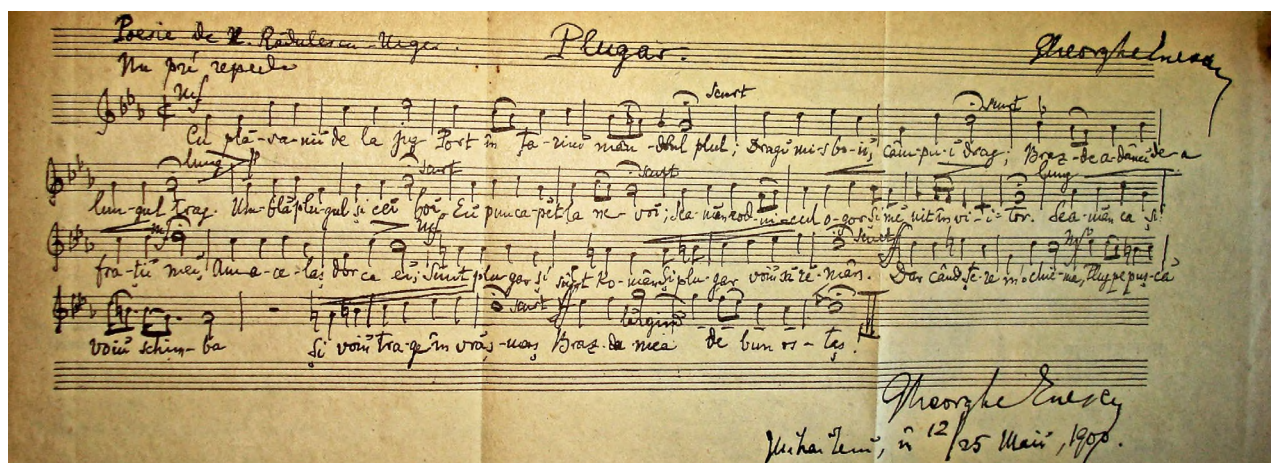 Poesie de N. Rădulescu-Niger. Plugar. Gheorghe Enescu
Nu pré repede
mf scurt scurt
Cu plă-va-nii de la jug Port în ța-rină mân-drul plug; Dragú mi-s bo-ii, câm-pu-i drag; Braz-de a-dânci de-a
lung p scurt scurt lung
lun-gul trag. Um-blă plu-gul și cei boi, Eu pun ca-pět la ne-voi; Sea-măn rod-ni-cul o-gor Și mě uit în vi-i-tor. Sea-măn ca și
mf mf scurt mf
fra-ții mei, Am a-ce-laș dor ca ei; Sunt plu-gar și sunt Ro-mân Și plu-gar voiu să rě-mân. Dar când țe-ra m'o che-ma, Plug pe puș-că
scurt ff lărgind
voiu schim-ba Și voiu tra-ge în vrăș-maș Braz-da mea de bun os-taș.
Gheorghe Enescu
Mihăileni, în 12/25 Maiu, 1900.